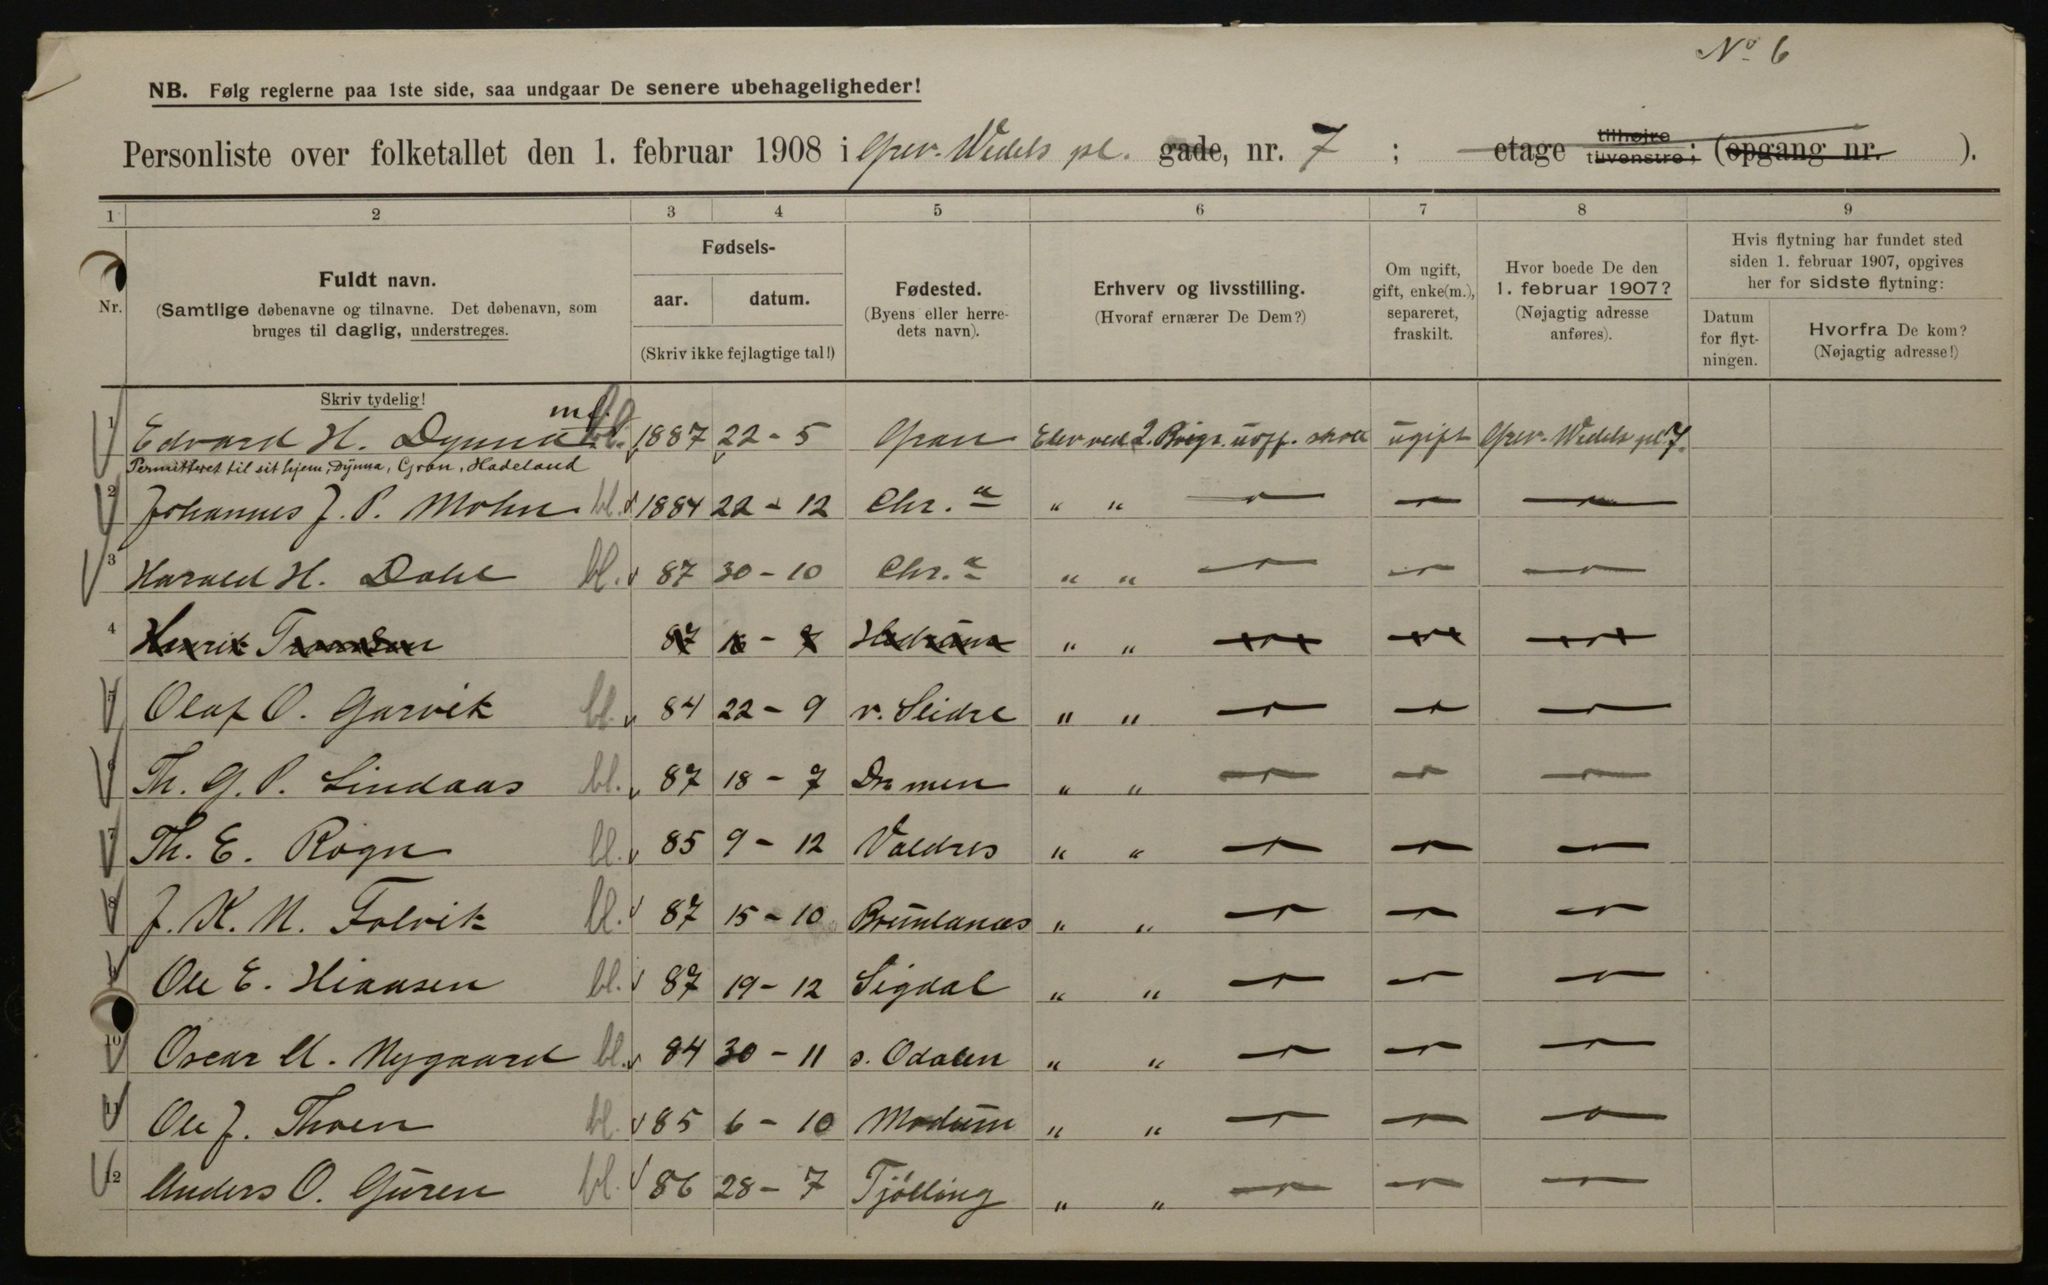 No 6
NB. Følg reglerne paa 1ste side, saa undgaar De senere ubehageligheder!
Personliste over folketallet den 1. februar 1908 i Grev. Wedels pl. gade, nr. 7 ; etage tilhøjre tilvenstre; (opgang nr. ).
1 2 3 4 5 6 7 8 9
Nr.
Fuldt navn.
(Samtlige døbenavne og tilnavne. Det døbenavn, som
bruges til daglig, understreges.
Skriv tydelig!
Fødsels-
aar. datum.
(Skriv ikke fejlagtige tal!)
Fødested.
(Byens eller herre-
dets navn).
Erhverv og livsstilling.
(Hvoraf ernærer De Dem?)
Om ugift,
gift, enke(m.),
separeret,
fraskilt.
Hvor boede De den
1. februar 1907?
(Nøjagtig adresse
anføres).
Hvis flytning har fundet sted
siden 1. februar 1907, opgives
her for sidste flytning:
Datum
for flyt-
ningen.
Hvorfra De kom?
(Nøjagtig adresse!)
1 Edvard H. Dynna m. bl. 1887 22 - 5 Gran Elev ved 2. Brigs. uoff. skole ugift Grev. Wedels pl 7.
Permitteret til sit hjem, Dynna, Gran, Hadeland
2 Johannes J. P. Mohn bl. 1884 22 - 12 Chr.a " " — — —
3 Harald H. Dahl bl. 87 30 - 10 Chr.a " " — — —
4 Henrik 87 16 - 7 Hedrum " " — — —
5 Olaf O. Garvik bl. 84 22 - 9 v. Slidre " " — — —
6 Th. G. P. Lindaas bl. 87 18 - 7 Drmmen " " — — —
7 Th. E. Rogn bl. 85 9 - 12 Valdres " " — — —
8 J. K. M. Folvik bl. 87 15 - 10 Brunlanæs " " — — —
9 Ole E. Hiaasen bl. 87 19 - 12 Sigdal " " — — —
10 Oscar M. Nygaard bl. 84 30 - 11 s. Odalen " " — — —
11 Ole J. Thoen bl. 85 6 - 10 Modum " " — — —
12 Anders O. Guren bl. 86 28 - 7 Tjölling " " — — —